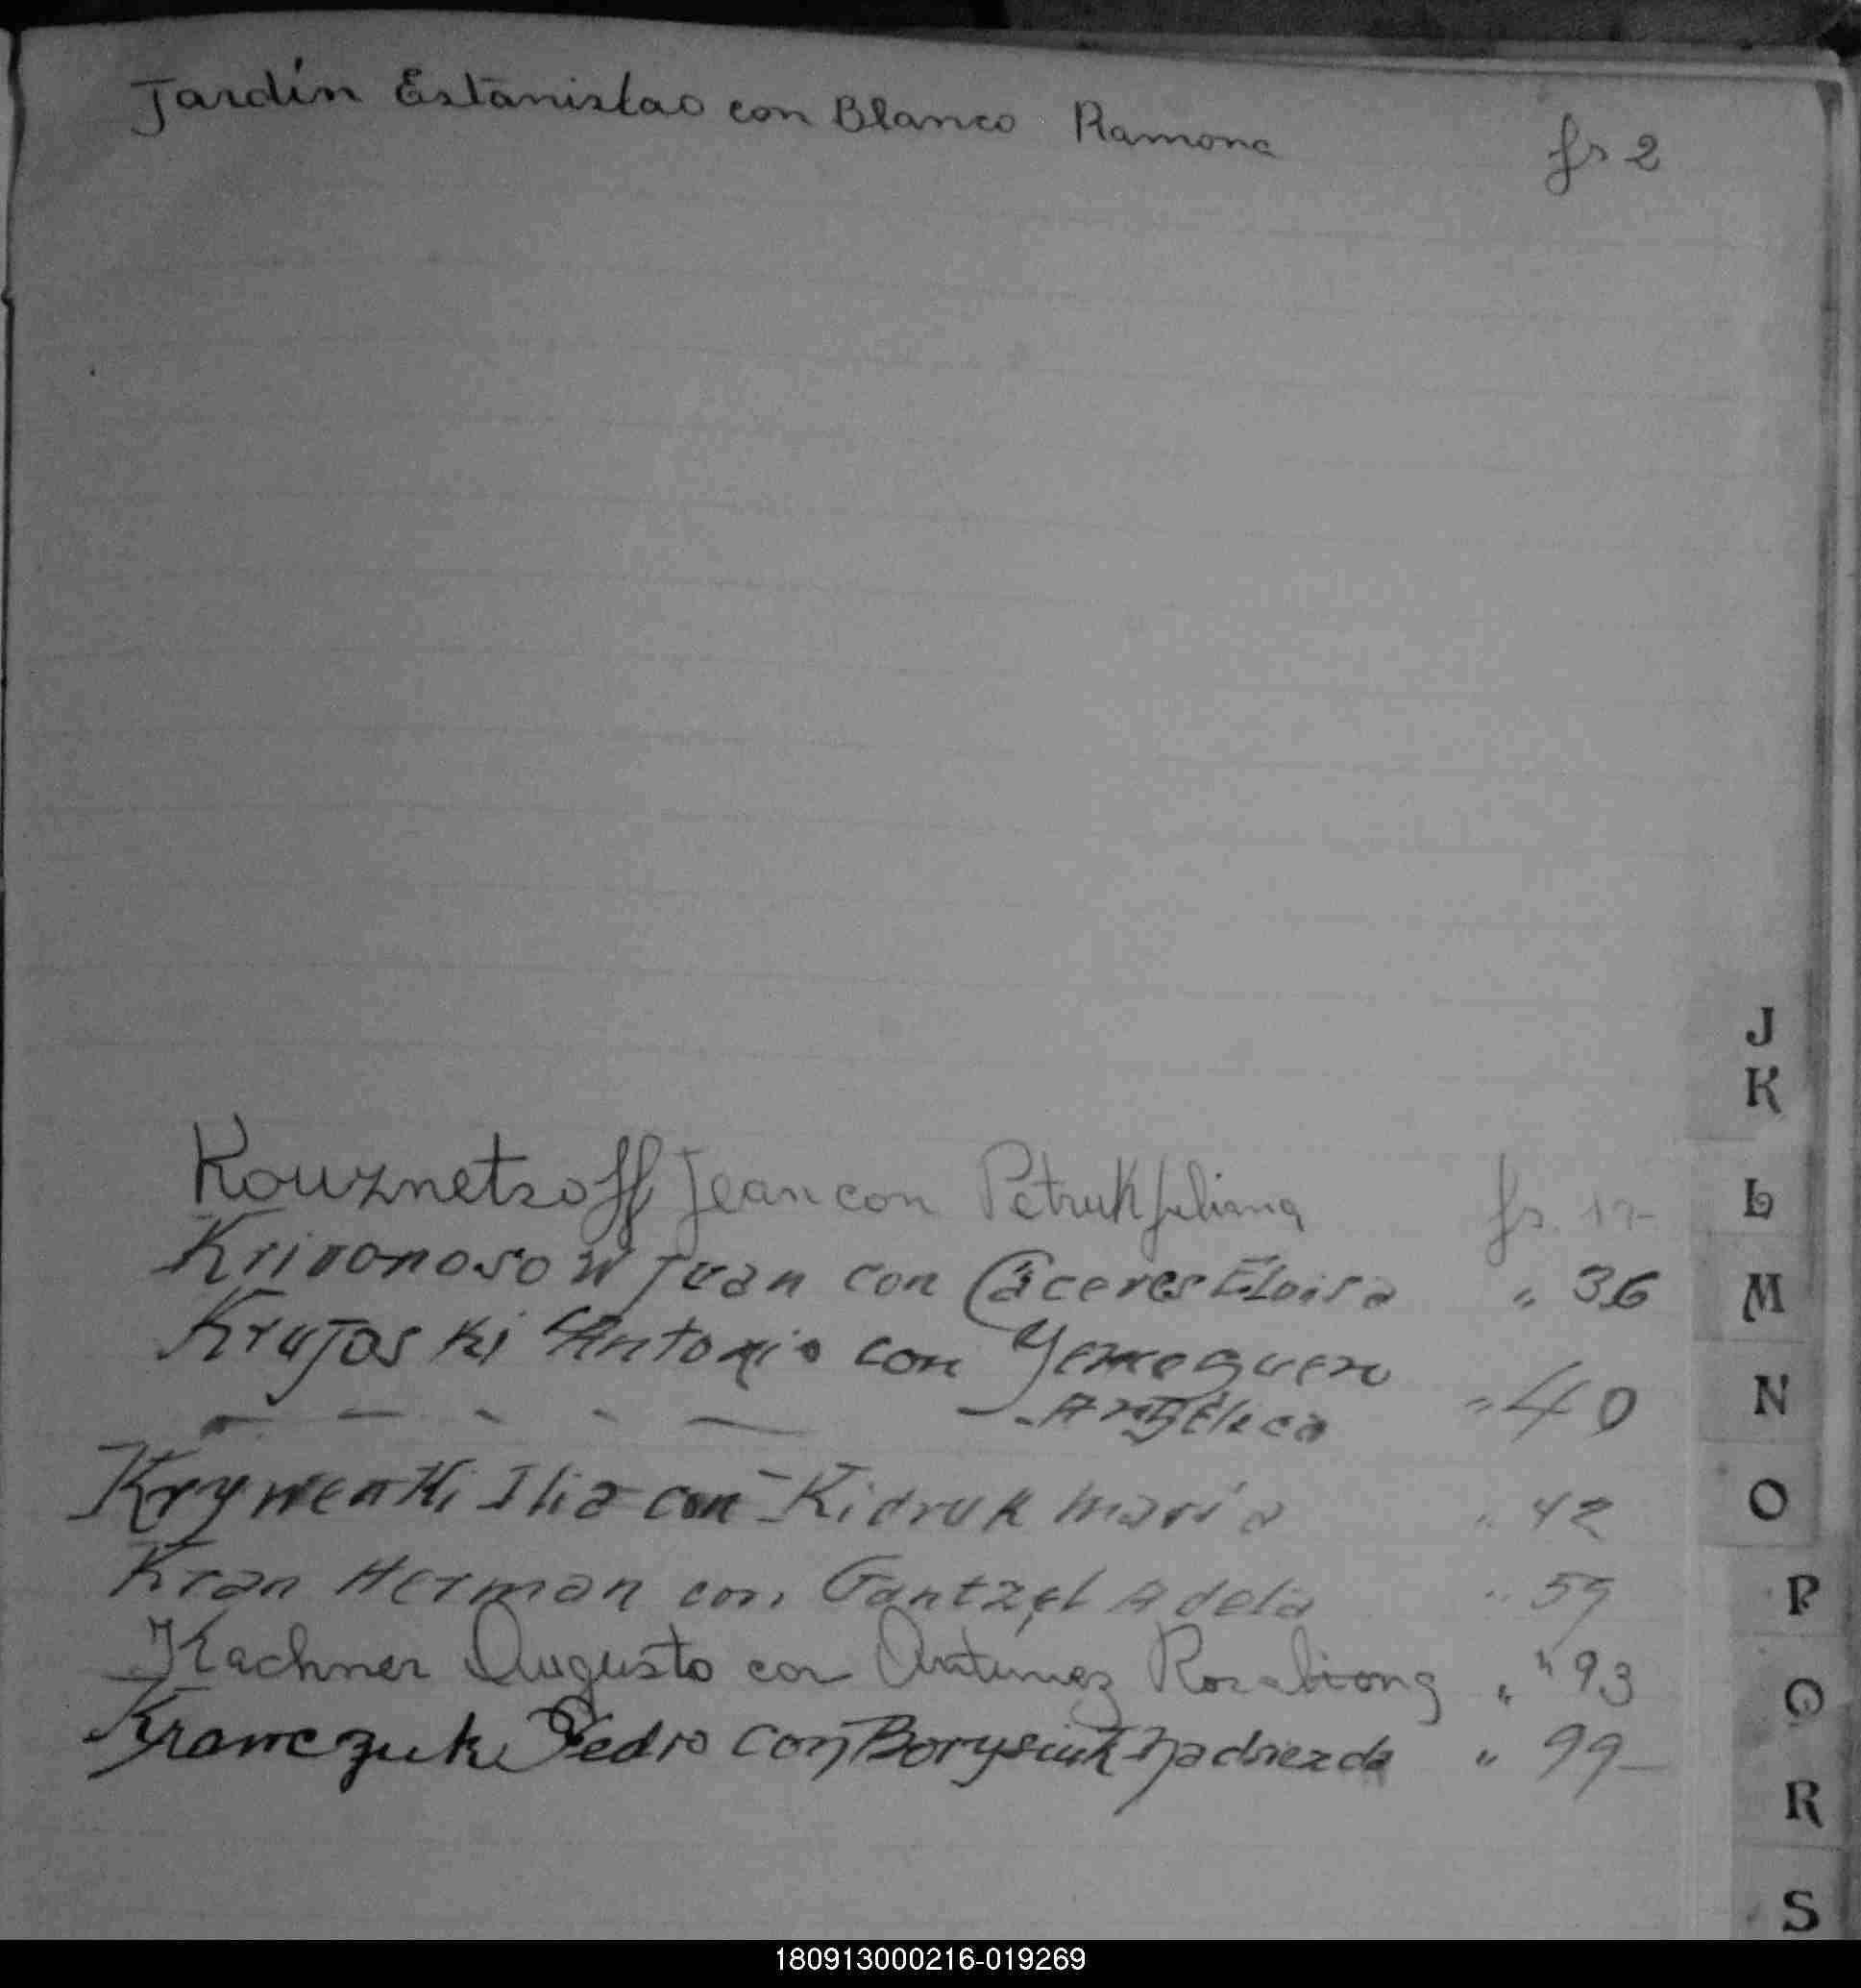 Jardín Estanislao con Blanco Ramona fs 2
J
K
Kouznetsoff Jean con Petruk Juliana fs. 17
L
Krivonosow Juan con Cáceres Eloisa " 36
M
Krujoski Antonio con
Angélica " 40
N
Ilia con Kidruk María " 42
O
Kran Herman con Gantzel Adela " 59
P
Kachner Augusto con Antunez " " 93
Q
Krawczuk Pedro con Borysiuk Nadziezda " 99
R
S
180913000216-019269